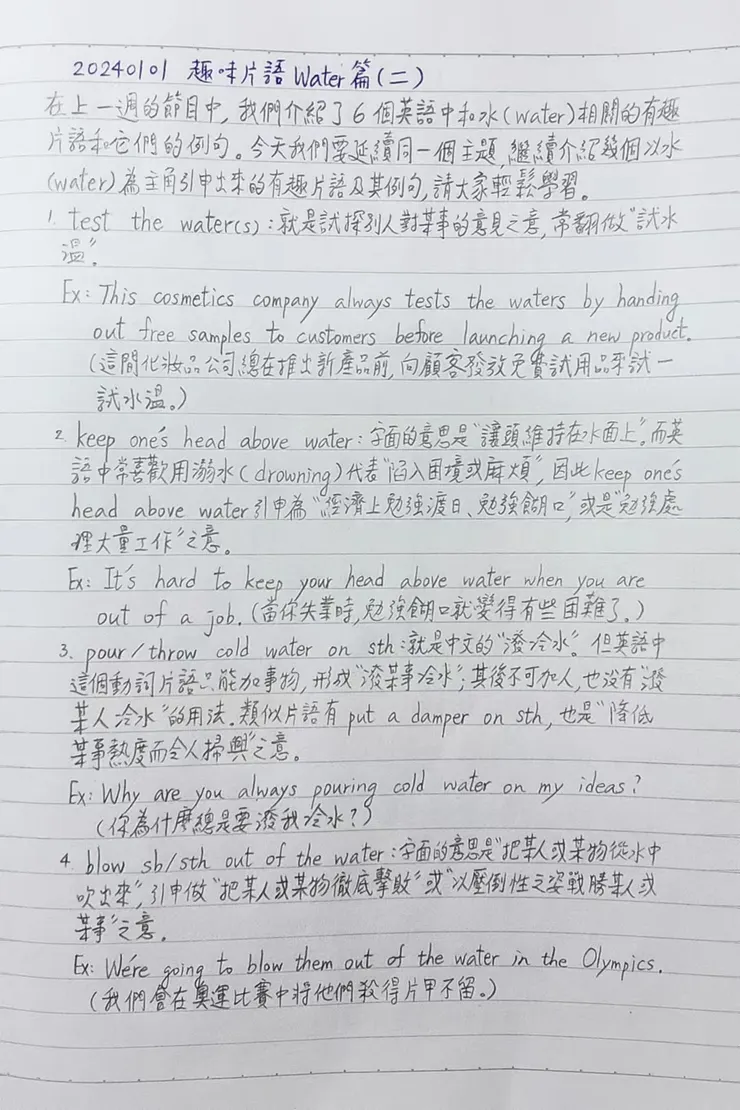 20240101 趣味片語 Water 篇(二)
在上一週的節目中, 我們介紹了 6 個英語中和水(water)相關的有趣
片語和它們的例句。今天我們要延續同一個主題, 繼續介紹幾個以水
(water)為主角引申出來的有趣片語及其例句, 請大家輕鬆學習。
1. test the water(s) : 就是試探別人對某事的意見之意, 常翻做"試水
溫"。
Ex: This cosmetics company always tests the waters by handing
out free samples to customers before launching a new product.
(這間化妝品公司總在推出新產品前, 向顧客發放免費試用品來試一
試水溫。)
2. keep one's head above water : 字面的意思是"讓頭維持在水面上"。而英
語中常喜歡用溺水(drowning)代表"陷入困境或麻煩", 因此 keep one's
head above water 引申為"經濟上勉強渡日、勉強餬口", 或是"勉強處
理大量工作"之意。
Ex: It's hard to keep your head above water when you are
out of a job. (當你失業時, 勉強餬口就變得有些困難了。)
3. pour/throw cold water on sth : 就是中文的"潑冷水"。但英語中
這個動詞片語只能加事物, 形成"潑某事冷水"; 其後不可加人, 也沒有"潑
某人冷水"的用法. 類似片語有 put a damper on sth, 也是"降低
某事熱度而令人掃興"之意。
Ex: Why are you always pouring cold water on my ideas?
(你為什麼總是要潑我冷水?)
4. blow sb/sth out of the water : 字面的意思是"把某人或某物從水中
吹出來", 引申做"把某人或某物徹底擊敗"或"以壓倒性之姿戰勝某人或
某事"之意.
Ex: We're going to blow them out of the water in the Olympics.
(我們會在奧運比賽中將他們殺得片甲不留。)